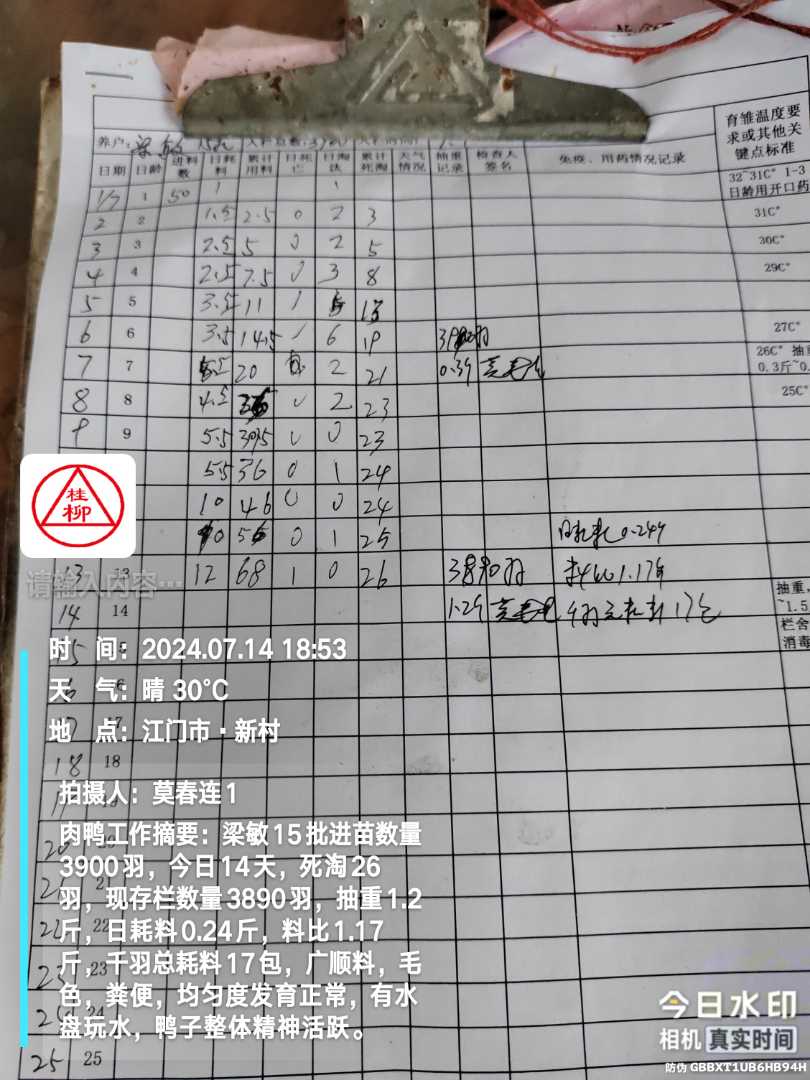 育雏温度要
求或其他关
键点标准
养户: 梁敏
日期 日龄 进料数 日耗料 累计用料 日死亡 日淘汰 累计死淘 天气情况 抽重记录 检查人签名 免疫、用药情况记录
1/7 1 50 1 1 32~31C° 1-3
日龄用开口药
2 2 1.5 2.5 0 2 3 31C°
3 3 2.5 5 0 2 5 30C°
4 4 2.5 7.5 0 3 8 29C°
5 5 3.5 11 1 13
6 6 3.5 14.5 1 6 19 27C°
7 7 20 2 21 0.3斤 26C° 抽重
0.3斤~0.
8 8 4.5 0 2 23 25C°
9 9 5.5 0 0 23
5.5 36 0 1 24
10 46 0 0 24
0 1 25 日耗料0.24斤
13 13 12 68 1 0 26 3890羽 料比1.17斤
14 14 1.2斤 千羽总耗料17包 抽重,
~1.5
栏舍
消毒
桂柳
请输入内容…
时 间: 2024.07.14 18:53
天 气: 晴 30℃
地 点: 江门市·新村
拍摄人: 莫春连1
肉鸭工作摘要: 梁敏15批进苗数量
3900羽, 今日14天, 死淘26
羽, 现存栏数量3890羽, 抽重1.2
斤, 日耗料0.24斤, 料比1.17
斤, 千羽总耗料17包, 广顺料, 毛
色, 粪便, 均匀度发育正常, 有水
盘玩水, 鸭子整体精神活跃。
18 18
22
23 23
24
25 25
今日水印
相机 真实时间
防伪 GBBXT1UB6HB94H